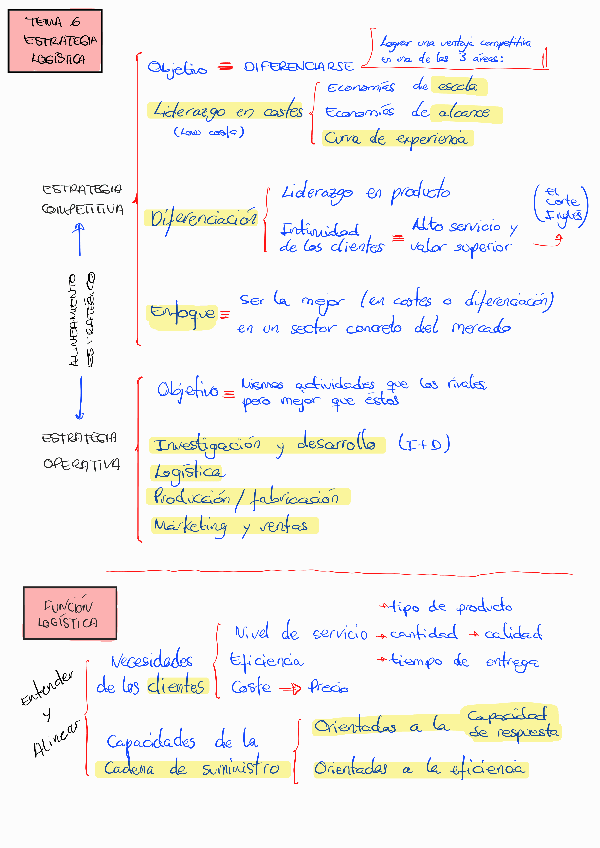 TEMA 6
ESTRATEGIA
LOGÍSTICA
Objetivo = DIFERENCIARSE
Lograr una ventaja competitiva
en una de las 3 áreas:
Liderazgo en costes
(low costs)
Economías de escala
Economías de alcance
Curva de experiencia
ESTRATEGIA
COMPETITIVA
Diferenciación
Liderazgo en producto
Intimidad
de los clientes = Alto servicio y
valor superior
(El
Corte
Inglés)
Enfoque = Ser la mejor (en costes o diferenciación)
en un sector concreto del mercado
ALINEAMIENTO
ESTRATÉGICO
ESTRATEGIA
OPERATIVA
Objetivo = Mismas actividades que los rivales
pero mejor que éstos
Investigación y desarrollo (I+D)
Logística
Producción / fabricación
Marketing y ventas
FUNCIÓN
LOGÍSTICA
Entender
y
Alinear
Necesidades
de los clientes
Nivel de servicio → tipo de producto
→ cantidad → calidad
→ tiempo de entrega
Eficiencia
Coste → Precio
Capacidades de la
Cadena de suministro
Orientadas a la capacidad
de respuesta
Orientadas a la eficiencia